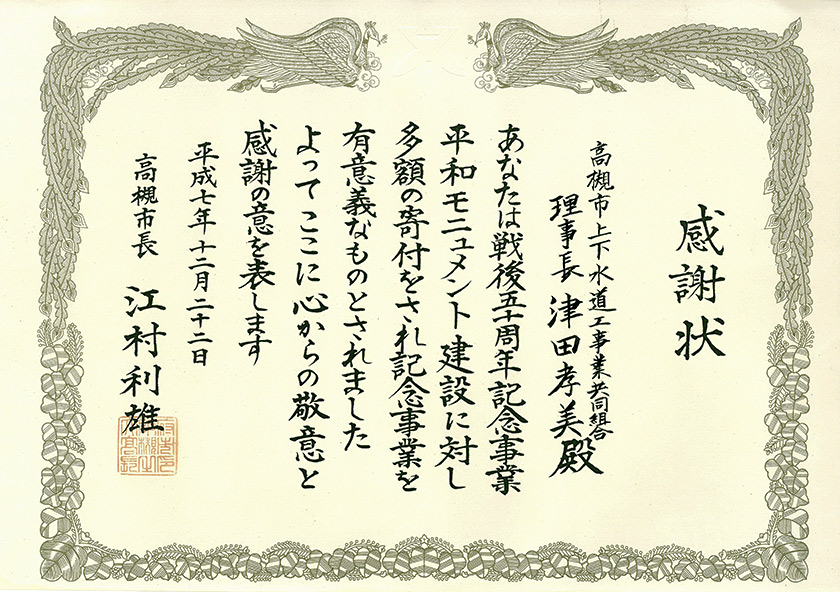 感謝状
高槻市上下水道工事業共同組合
理事長 津田孝美殿
あなたは戦後五十周年記念事業
平和モニュメント建設に対し
多額の寄付をされ記念事業を
有意義なものとされました
よってここに心からの敬意と
感謝の意を表します
平成七年十二月二十二日
高槻市長 江村利雄